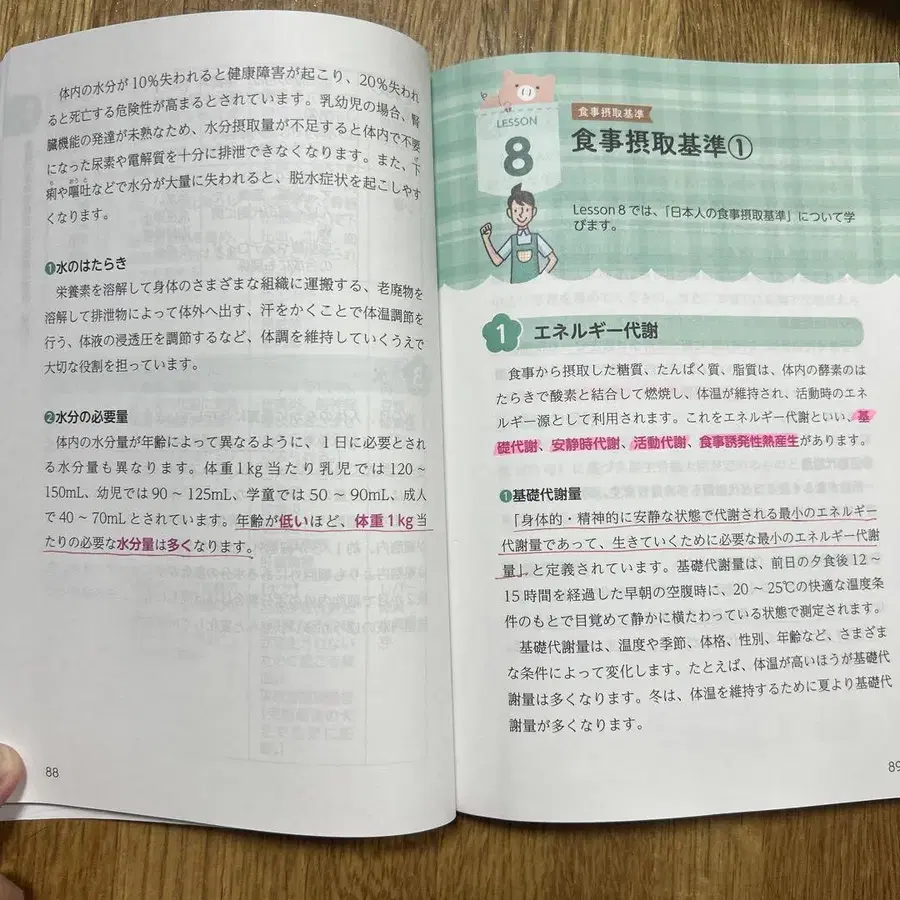 体内の水分が10％失われると健康障害が起こり、20％失われ
ると死亡する危険性が高まるとされています。乳幼児の場合、腎
臓機能の発達が未熟なため、水分摂取量が不足すると体内で不要
になった尿素や電解質を十分に排泄できなくなります。また、下
痢や嘔吐などで水分が大量に失われると、脱水症状を起こしやす
くなります。
❶水のはたらき
栄養素を溶解して身体のさまざまな組織に運搬する、老廃物を
溶解して排泄物によって体外へ出す、汗をかくことで体温調節を
行う、体液の浸透圧を調節するなど、体調を維持していくうえで
大切な役割を担っています。
❷水分の必要量
体内の水分量が年齢によって異なるように、1日に必要とされ
る水分量も異なります。体重1kg当たり乳児では120～
150mL、幼児では90～125mL、学童では50～90mL、成人
で40～70mLとされています。年齢が低いほど、体重1kg当
たりの必要な水分量は多くなります。
88
LESSON
8
食事摂取基準
食事摂取基準①
Lesson 8では、「日本人の食事摂取基準」について学
びます。
1 エネルギー代謝
食事から摂取した糖質、たんぱく質、脂質は、体内の酵素のは
たらきで酸素と結合して燃焼し、体温が維持され、活動時のエネ
ルギー源として利用されます。これをエネルギー代謝といい、基
礎代謝、安静時代謝、活動代謝、食事誘発性熱産生があります。
❶基礎代謝量
「身体的・精神的に安静な状態で代謝される最小のエネルギー
代謝量であって、生きていくために必要な最小のエネルギー代謝
量」と定義されています。基礎代謝量は、前日の夕食後12～
15時間を経過した早朝の空腹時に、20～25℃の快適な温度条
件のもとで目覚めて静かに横たわっている状態で測定されます。
基礎代謝量は、温度や季節、体格、性別、年齢など、さまざま
な条件によって変化します。たとえば、体温が高いほうが基礎代
謝量は多くなります。冬は、体温を維持するために夏より基礎代
謝量が多くなります。
89